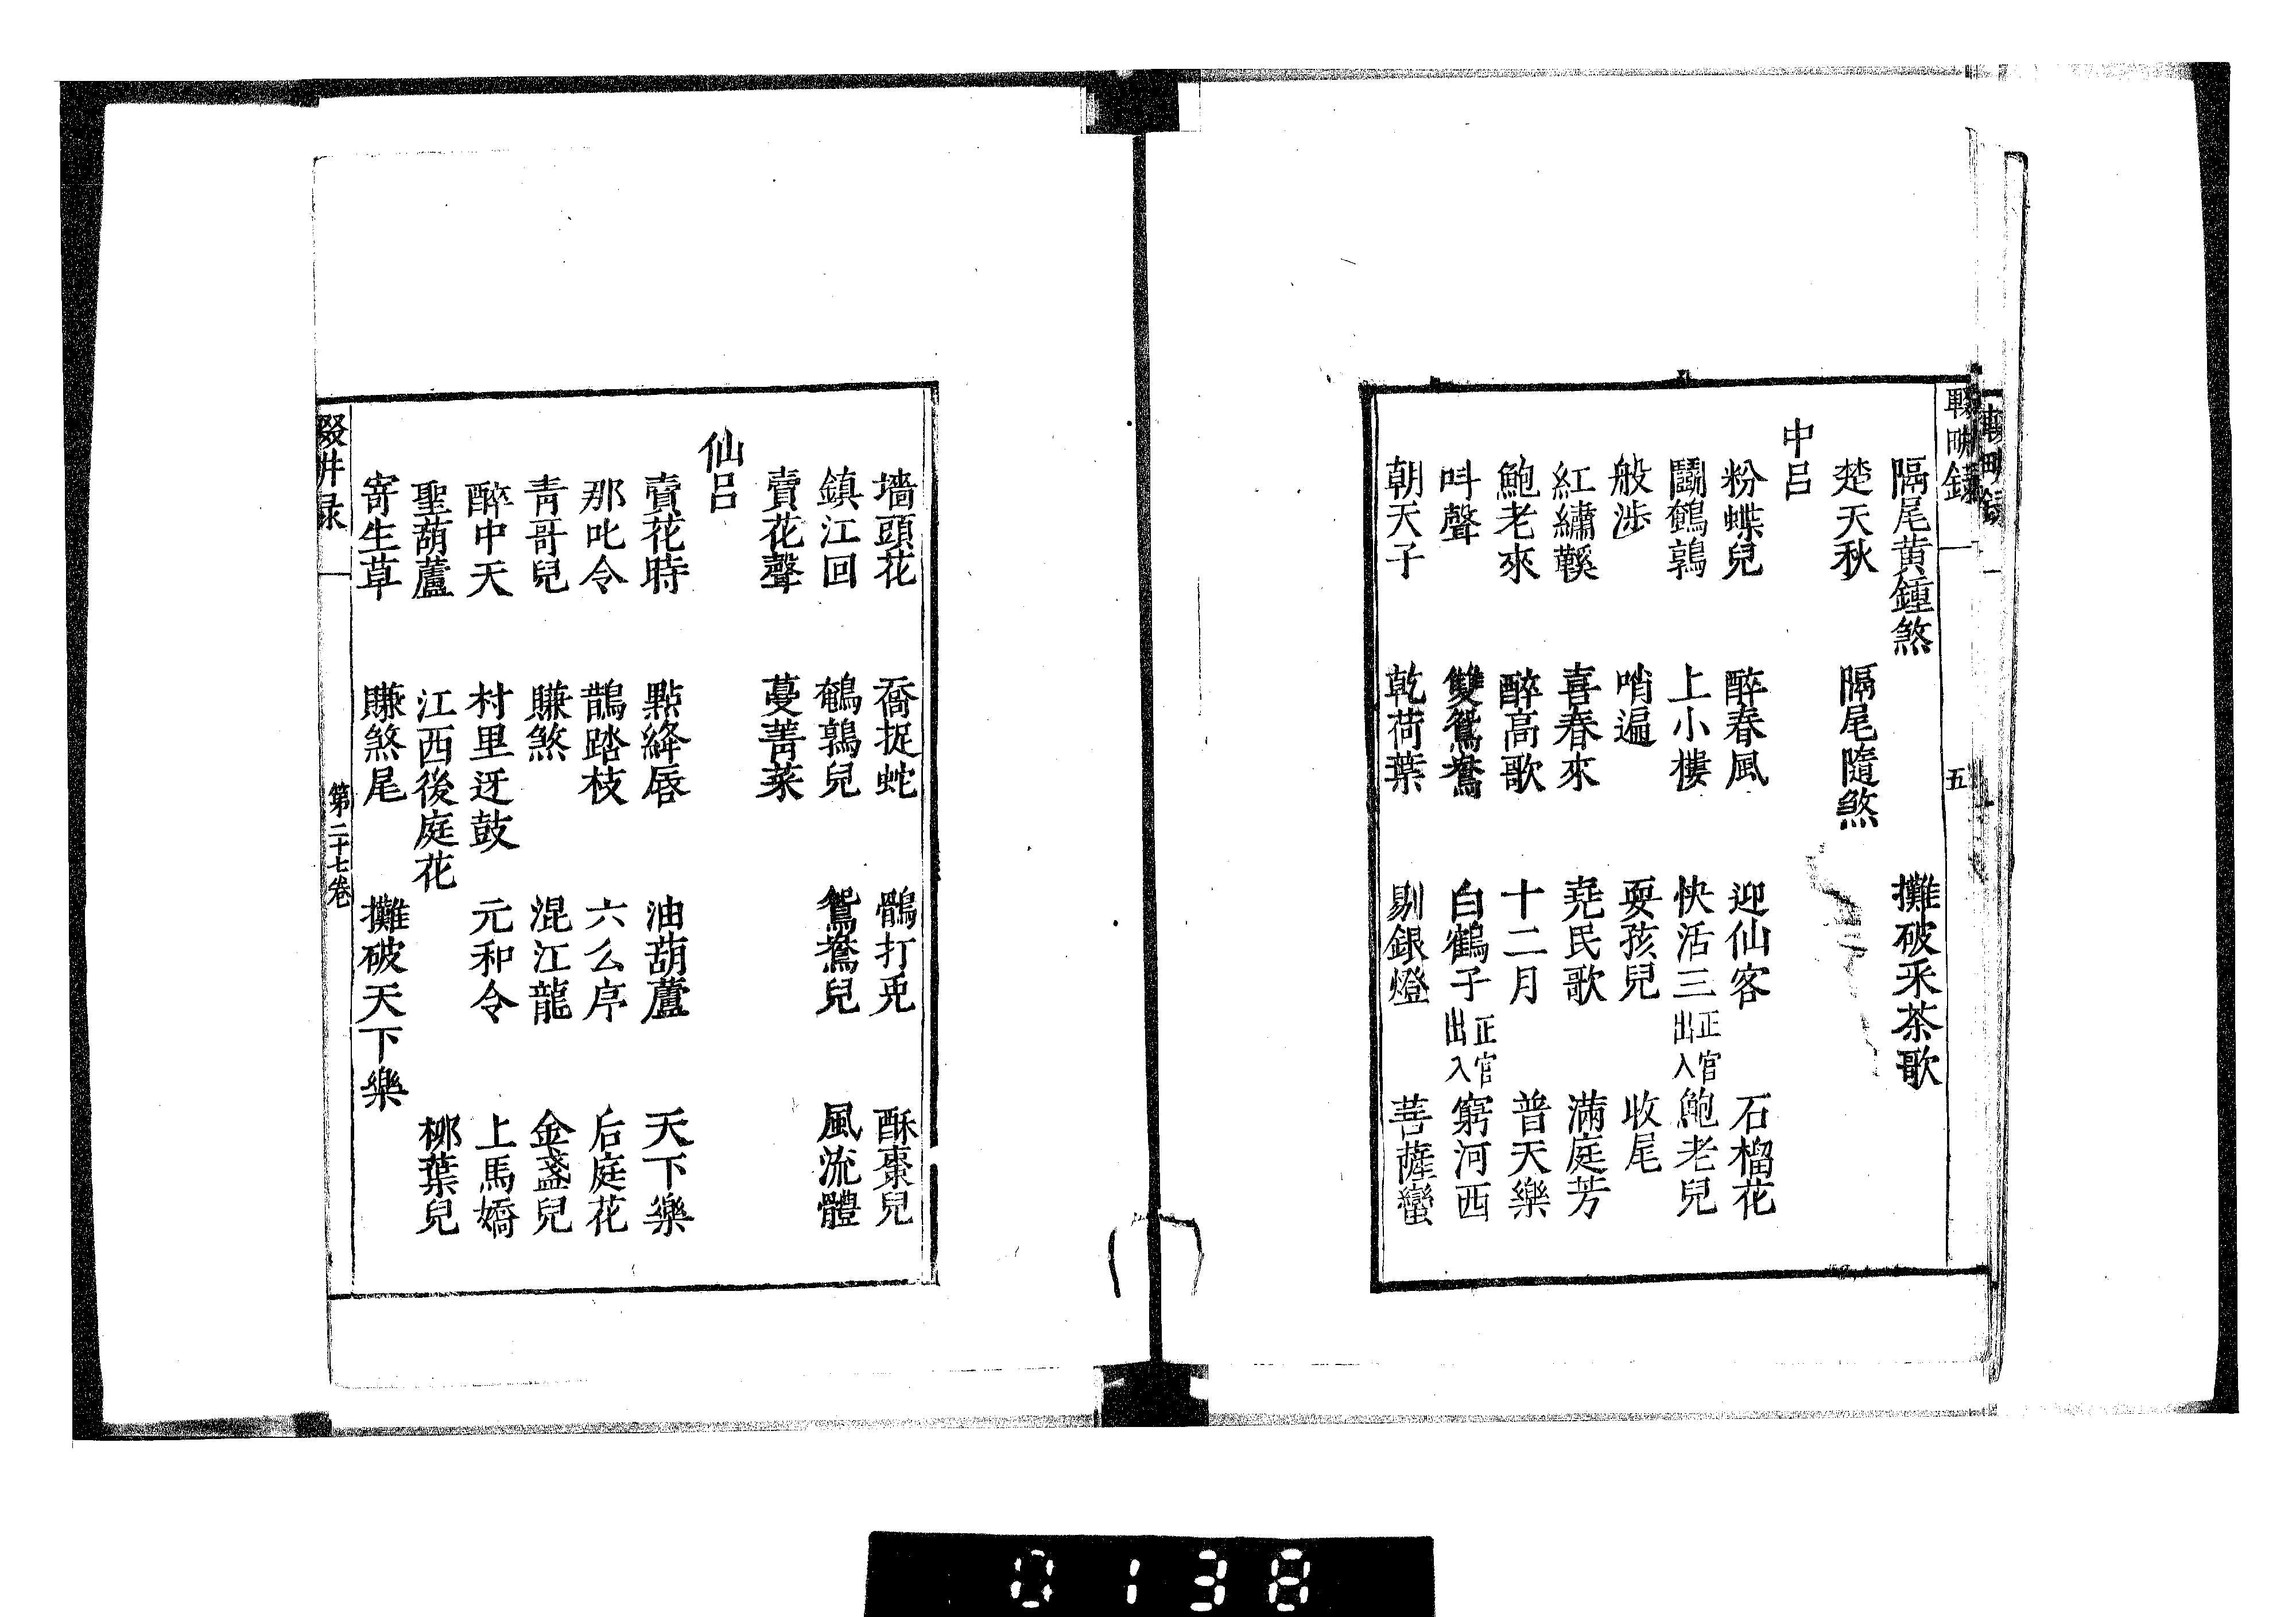 隔尾黄鍾煞　攤破采茶歌
楚天秋　隔尾隨煞
中呂
粉蝶兒　醉春風　迎仙客　石榴花
鬭鵪鶉　上小樓　快活三正官出入　鮑老兒
般涉　哨遍　耍孩兒　收尾
紅繡鞵　喜春來　堯民歌　滿庭芳
鮑老來　醉高歌　十二月　普天樂
呌聲　雙鴛鴦　白鶴子正官出入　窮河西
朝天子　乾荷葉　剔銀燈　菩薩蠻
五
墻頭花　喬捉蛇　鶻打兎　酥棗兒
鎮江回　鵪鶉兒　鴛鴦兒　風流體
賣花聲　蔓菁菜
仙呂
賣花時　點絳唇　油葫蘆　天下樂
那叱令　鵲踏枝　六么序　后庭花
青哥兒　賺煞　混江龍　金盞兒
醉中天　村里迓鼓　元和令　上馬嬌
聖葫蘆　江西後庭花　柳葉兒
寄生草　賺煞尾　攤破天下樂
第二十七卷
0138